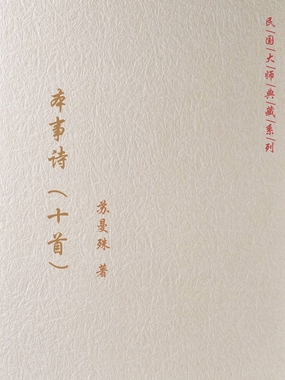 民国大师典藏系列
本事诗（十首）
苏曼殊 著